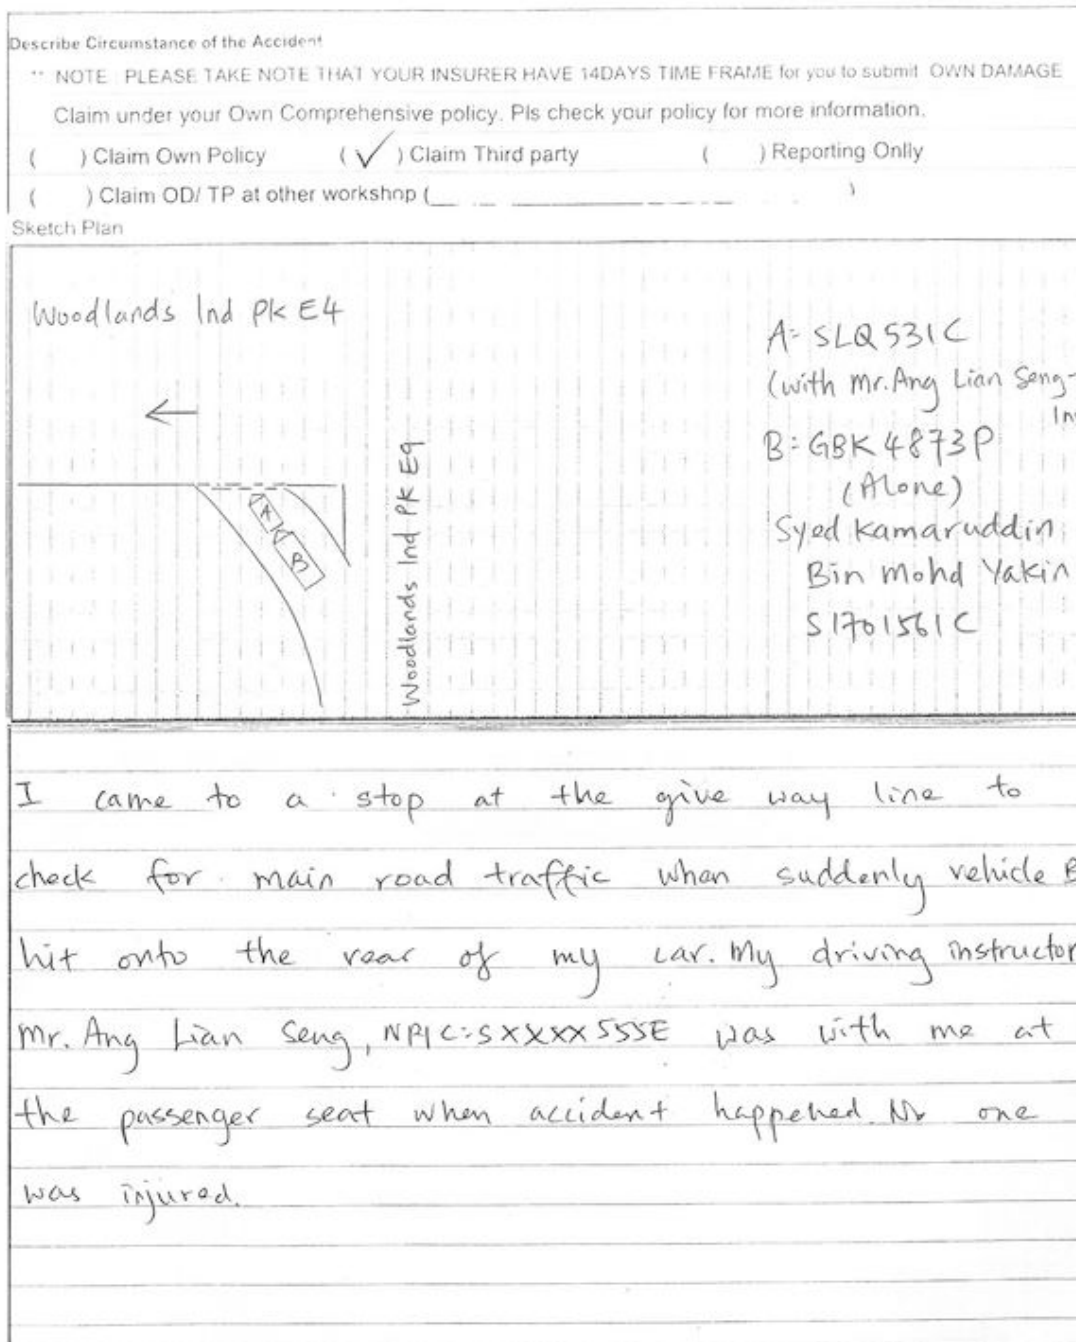 Describe Circumstance of the Accident
** NOTE : PLEASE TAKE NOTE THAT YOUR INSURER HAVE 14DAYS TIME FRAME for you to submit OWN DAMAGE
Claim under your Own Comprehensive policy. Pls check your policy for more information.
( ) Claim Own Policy ( ✓ ) Claim Third party ( ) Reporting Onlly
( ) Claim OD/ TP at other workshop ( )
Sketch Plan
Woodlands Ind Pk E4
A= SLQ531C
(with Mr. Ang Lian Seng-
In
B= GBK 4873P
(Alone)
Syed Kamaruddin
Bin Mohd Yakin
S1701561C
Woodlands Ind Pk E9
A
B
I came to a stop at the give way line to
check for main road traffic when suddenly vehicle B
hit onto the rear of my car. My driving instructor
Mr. Ang Lian Seng, NRIC:SXXXX555E was with me at
the passenger seat when accident happened. No one
was injured.